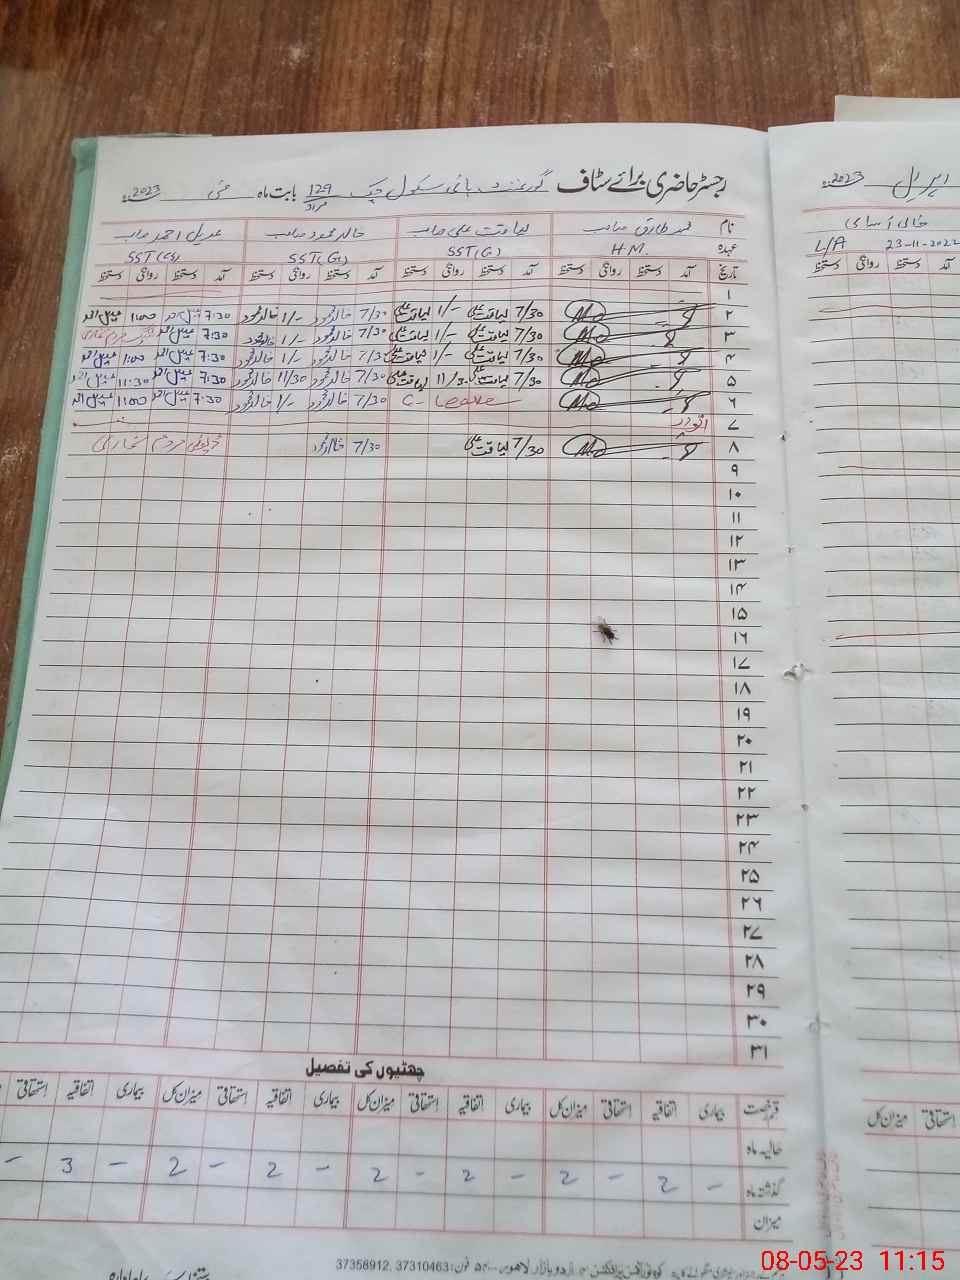 رجسٹر حاضری برائے سٹاف گورنمنٹ ہائی سکول چک 129 مراد بابت ماہ مئی 2023ء
نام محمد طارق صاحب لیاقت علی صاحب خالد محمود صاحب عدیل احمد صاحب
عہدہ H.M. SST(G) SST(G) SST(CS)
تاریخ آمد دستخط روانگی دستخط آمد دستخط روانگی دستخط آمد دستخط روانگی دستخط آمد دستخط روانگی دستخط
۱
۲ 7/30 لیاقت علی 1/- لیاقت علی 7/30 خالد محمود 1/- خالد محمود 7:30 عدیل احمد 1:00 عدیل احمد
۳ 7/30 لیاقت علی 1/- لیاقت علی 7/30 خالد محمود 1/- خالد محمود 7:30 عدیل احمد مردم شماری
۴ 7/30 لیاقت علی 1/- لیاقت علی 7/30 خالد محمود 1/- خالد محمود 7:30 عدیل احمد 1:00 عدیل احمد
۵ 7/30 لیاقت علی 11/30 لیاقت علی 7/30 خالد محمود 11/30 خالد محمود 7:30 عدیل احمد 11:30 عدیل احمد
۶ 7/30 خالد محمود 1/- خالد محمود 7:30 عدیل احمد 1:00 عدیل احمد
۷ اتوار
۸ 7/30 لیاقت علی 7/30 خالد محمود ڈیوٹی مردم شماری
۹
۱۰
۱۱
۱۲
۱۳
۱۴
۱۵
۱۶
۱۷
۱۸
۱۹
۲۰
۲۱
۲۲
۲۳
۲۴
۲۵
۲۶
۲۷
۲۸
۲۹
۳۰
۳۱
چھٹیوں کی تفصیل
قسم رخصت بیماری اتفاقیہ استحقاقی میزان کل بیماری اتفاقیہ استحقاقی میزان کل بیماری اتفاقیہ استحقاقی میزان کل بیماری اتفاقیہ استحقاقی
حالیہ ماہ
گذشتہ ماہ - 2 - 2 - 2 - 2 - 2 - 2 - 3 -
میزان
اردو بازار لاہور فون: 37310463, 37358912
اپریل 2023ء
خالی آسامی
L/A 23-11-2022
آمد دستخط روانگی دستخط
استحقاقی میزان کل
08-05-23 11:15